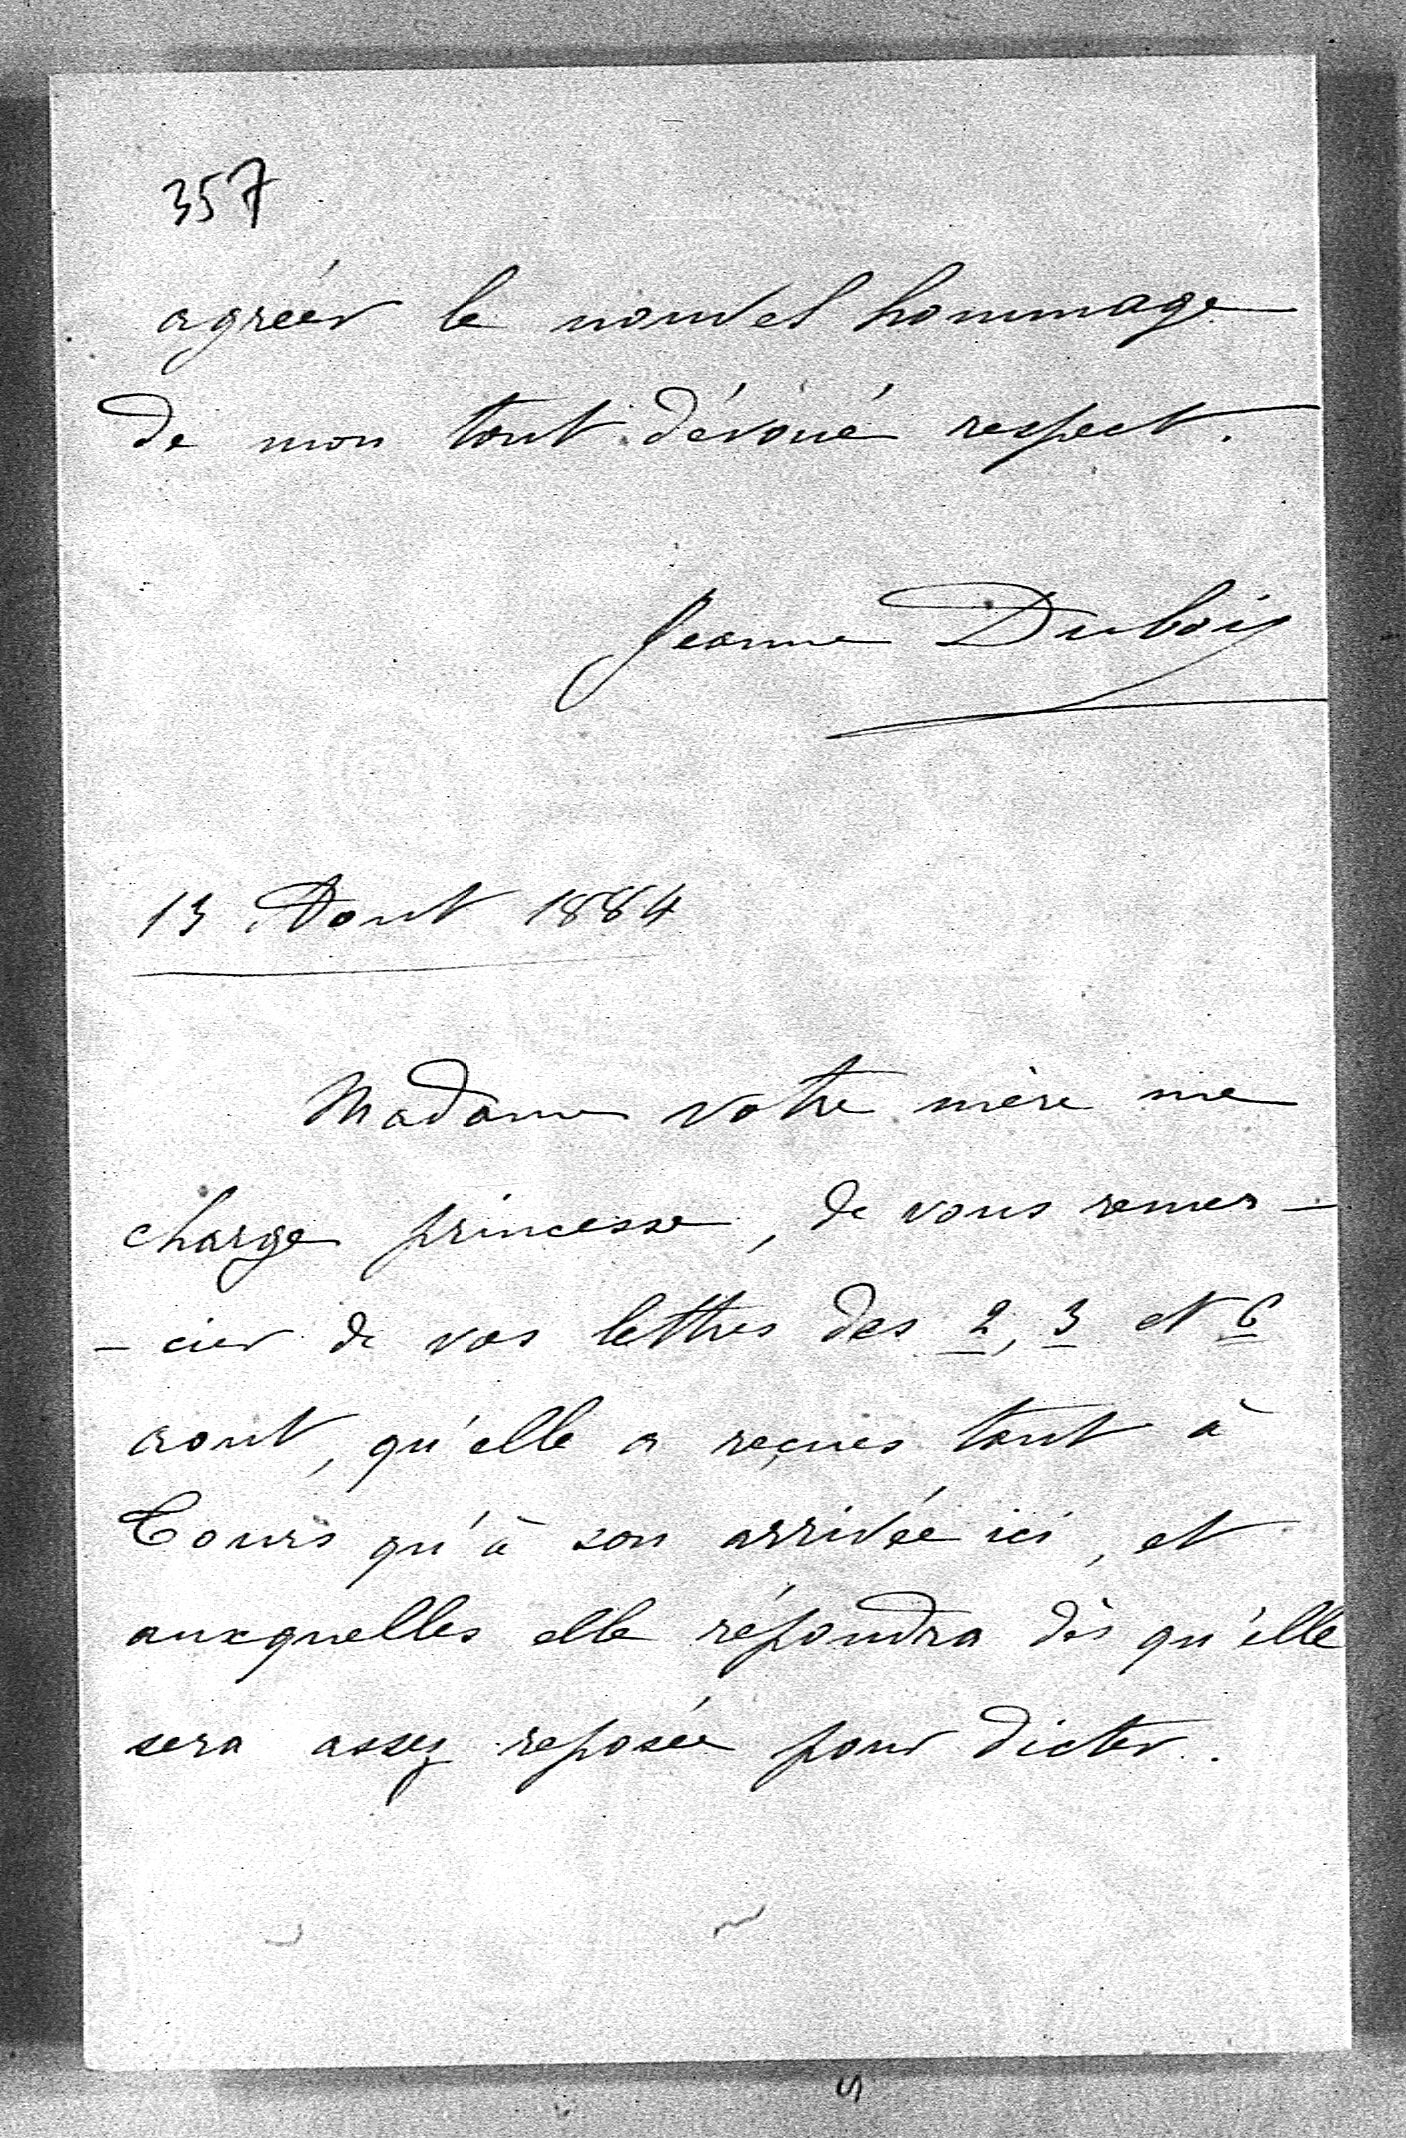 357
agréér le nouvel hommage
de mon tout dévoué respect.
Jeanne Dubois
13 Aout 1884
Madame votre mère me
charge princesse, de vous remer-
-cier de vos lettres des 2, 3 et 6
aout, qu'elle a reçues tant à
Tours qu'à son arrivée ici, et
auxquelles elle répondra dès qu'elle
sera assez reposée pour dicter.